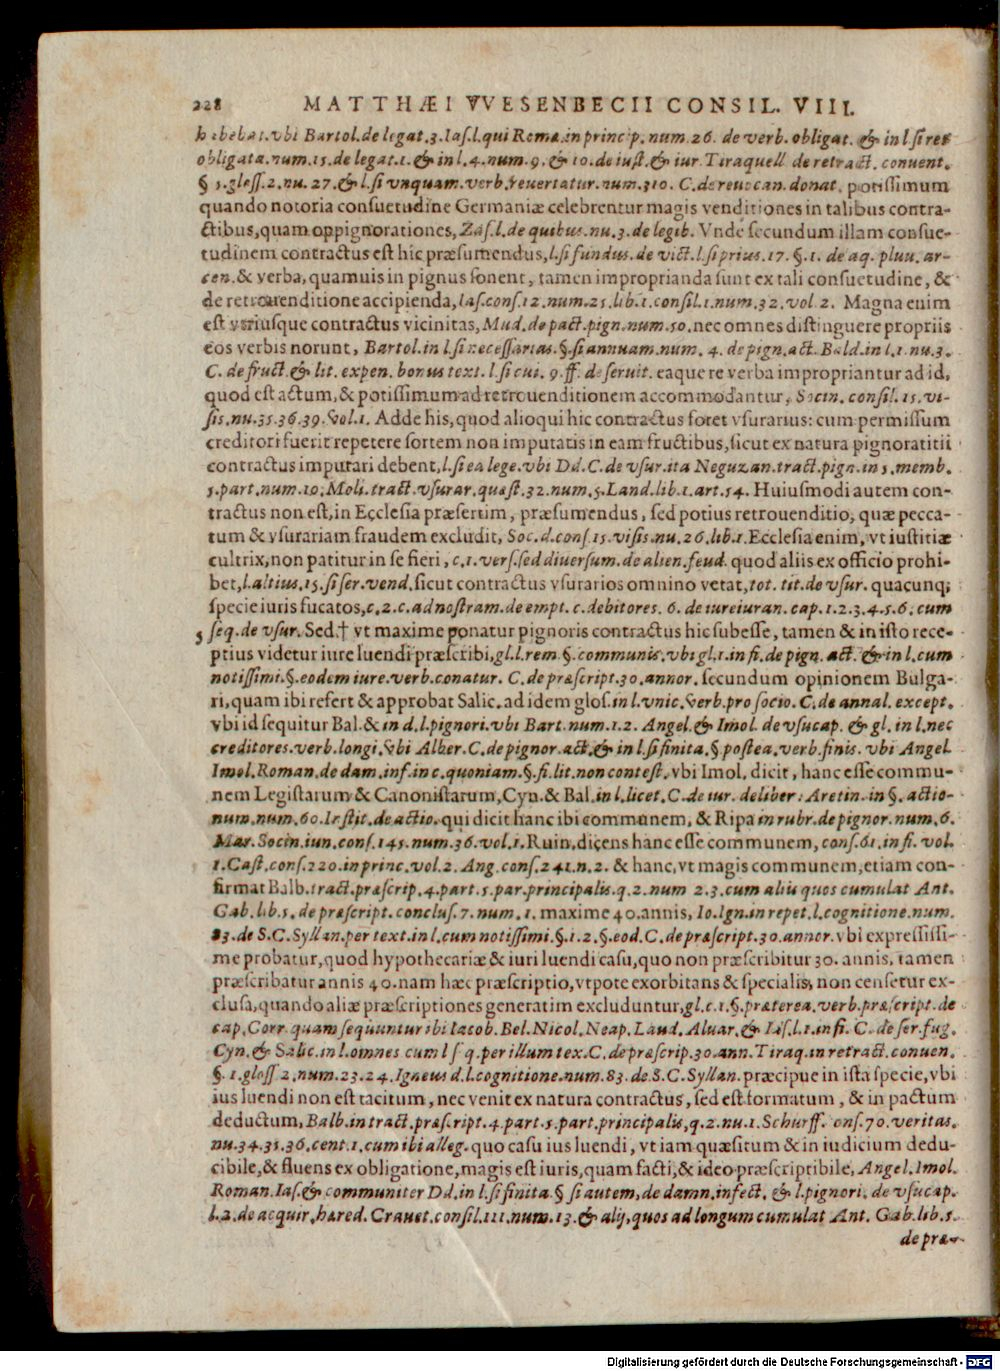 228 MATTHÆI VVESENBECII CONSIL. VIII.
habebat.vbi Bartol.de legat.3.Ias.l.qui Roma.in princip.num.26. de verb. obligat. & in l si res
obligata.num.15.de legat.1.& in l.4.num.9.& 10.de iust.& iur.Tiraquell de retract. conuent.
§ 1.gloss.2.nu.27.& l.si vnquam.verb.reuertatur.num.310. C.de reuocan.donat. potissimum
quando notoria consuetudine Germaniæ celebrentur magis venditiones in talibus contra-
ctibus,quam oppignorationes, Zas.l.de quibus.nu.3.de legib. Vnde secundum illam consue-
tudinem contractus est hic præsumendus,l.si fundus.de vict.l.si prius.17.§.1. de aq. pluu. ar-
cen.& verba,quamuis in pignus sonent, tamen improprianda sunt ex tali consuetudine, &
de retrouenditione accipienda,Ias.cons.12.num.25.lib.1.consil.1.num.32.vol 2. Magna enim
est vtriusque contractus vicinitas, Mud.de pact.pign.num.50. nec omnes distinguere propriis
eos verbis norunt, Bartol.in l.si necessarias.§.si annuam.num. 4. de pign.act. Bald.in l.1.nu.3.
C. de fruct.& lit. expen. bonus text. l.si cui. 9.ff. de seruit. eaque re verba impropriantur ad id,
quod est actum,& potissimum ad retrouenditionem accommodantur, Socin. consil. 15. vi-
sis.nu.35.36.39.vol.1. Adde his,quod alioqui hic contractus foret vsurarius: cum permissum
creditori fuerit repetere sortem non imputatis in eam fructibus,sicut ex natura pignoratitii
contractus imputari debent,l.si ea lege.vbi Dd.C.de vsur.ita Neguzan.tract.pign.in 5.memb.
5.part.num.19.Moli.tract.vsurar.quæst.32.num.5.Land.lib.1.art.54. Huiusmodi autem con-
tractus non est,in Ecclesia præsertim, præsumendus, sed potius retrouenditio, quæ pecca-
tum & vsurariam fraudem excludit, Soc.d.cons.15.visis.nu.26.lib.1.Ecclesia enim, vt iustitiæ
cultrix,non patitur in se fieri, c.1.vers.sed diuersum.de alien.feud. quod aliis ex officio prohi-
bet,l.altius.15.si ser.vend.sicut contractus vsurarios omnino vetat,tot. tit.de vsur. quacunq;
specie iuris fucatos,c.2.c.ad nostram.de empt. c.debitores. 6. de iureiuran. cap.1.2.3.4.5.6. cum
5 seq.de vsur. Sed.† vt maxime ponatur pignoris contractus hic subesse, tamen & in isto rece-
ptius videtur iure luendi præscribi,gl.l.rem §.communis.vbi gl.1.in fi.de pign. act. & in l.cum
notissimi.§.eodem iure.verb.conatur. C.de præscript.30.annor. secundum opinionem Bulga-
ri,quam ibi refert & approbat Salic.ad idem glos.in l.vnic.verb.pro socio. C.de annal. except.
vbi id sequitur Bal.& in d.l.pignori.vbi Bart.num.1.2. Angel.& Imol. de vsucap. & gl. in l.nec
creditores.verb.longi.vbi Alber.C.de pignor.act.& in l.si finita.§.postea.verb.finis. vbi Angel.
Imol.Roman.de dam.inf.in c.quoniam.§.fi.lit.non contest. vbi Imol. dicit, hanc esse commu-
nem Legistarum & Canonistarum,Cyn.& Bal.in l.licet.C.de iur. deliber: Aretin. in §. actio-
num.num.60.Instit.de actio. qui dicit hanc ibi communem, & Ripa in rubr.de pignor.num.6.
Mar. Socin.iun.cons.145.num.36.vol.1. Ruin,dicens hanc esse communem, cons.61.in fi. vol.
1.Cast.cons.220.in princ.vol.2. Ang.cons.241.n.2. & hanc,vt magis communem,etiam con-
firmat Balb.tract.præscrip.4.part.5.par.principalis.q.2.num 2.3.cum aliis quos cumulat Ant.
Gab.lib.5. de præscript. conclus.7.num.1. maxime 40.annis, Io.Ign.in repet.l.cognitione.num.
83.de S.C.Syllan.per text.in l.cum notissimi.§.1.2.§.eod.C.de præscript.30.annor. vbi expressissi-
me probatur,quod hypothecariæ & iuri luendi casu,quo non præscribitur 30. annis, tamen
præscribatur annis 40.nam hæc præscriptio,vtpote exorbitans & specialis, non censetur ex-
clusa,quando aliæ præscriptiones generatim excluduntur,gl.c.1.§.præterea.verb.præscript.de
cap.Corr.quam sequuntur ibi Iacob.Bel.Nicol.Neap.Laud.Aluar.& Ias.l.1.in fi. C. de ser.fug.
Cyn.& Salic.in l.omnes cum l s q.per illum tex.C.de præscrip.30.ann.Tiraq.in retract.conuen.
§.1.gloss 2.num.23.24.Igneus d.l.cognitione.num.83. de S.C.Syllan. præcipue in ista specie,vbi
ius luendi non est tacitum, nec venit ex natura contractus, sed est formatum, & in pactum
deductum, Balb.in tract.præscript.4.part.5.part.principalis,q.2.nu.1.Schurff. ons.70.veritas.
nu.34.35.36.cent.1.cum ibi alleg. quo casu ius luendi, vt iam quæsitum & in iudicium dedu-
cibile,& fluens ex obligatione,magis est iuris,quam facti,& ideo præscriptibile, Angel.Imol.
Roman.Ias.& communiter Dd.in l.si finita.§ si autem,de damn.infect. & l.pignori. de vsucap.
l.2.de acquir.hæred. Crauet.consil.111.num.13.& alij,quos ad longum cumulat Ant. Gab.lib.5.
de præ-
Digitalisierung gefördert durch die Deutsche Forschungsgemeinschaft - DFG